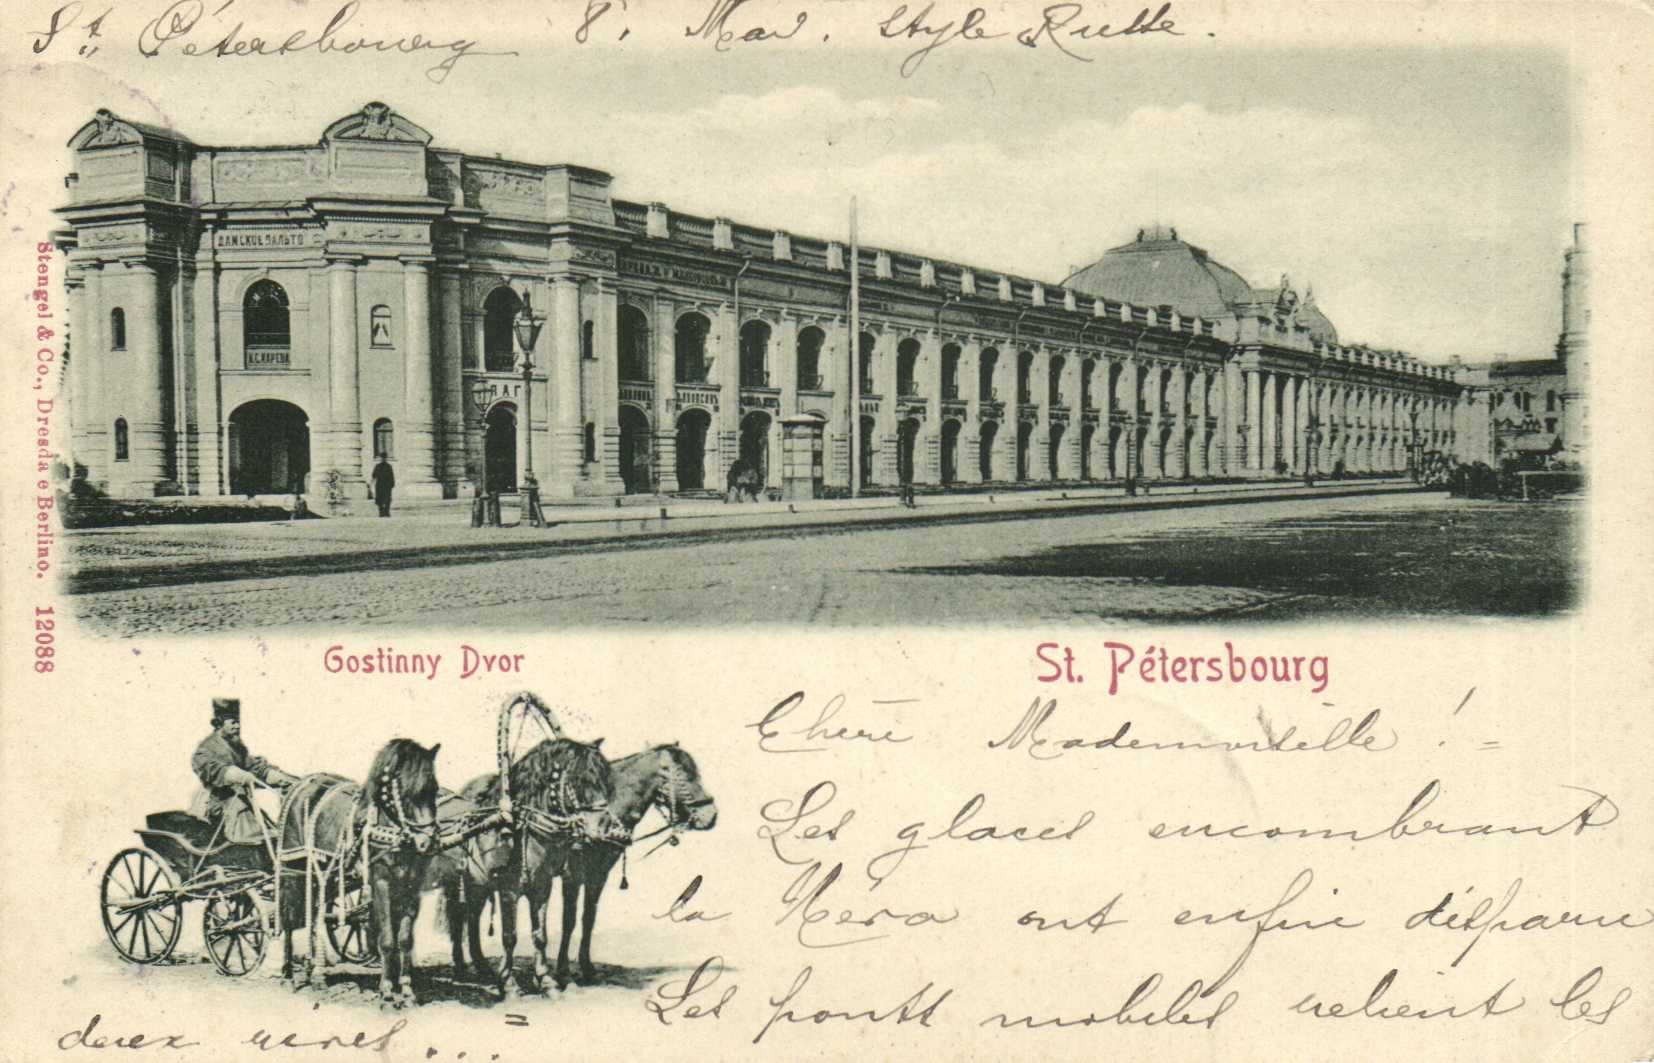 St. Pétersbourg 8. Mai. Style Russe.
ДАМСКОЕ ПАЛЬТО
Stengel & Co., Dresda e Berlino. 12088
Gostinny Dvor
St. Pétersbourg
Chère Mademoiselle !
Les glaces encombrant
la Néva ont enfin disparu
Les ponts mobiles relient les
deux rives ...